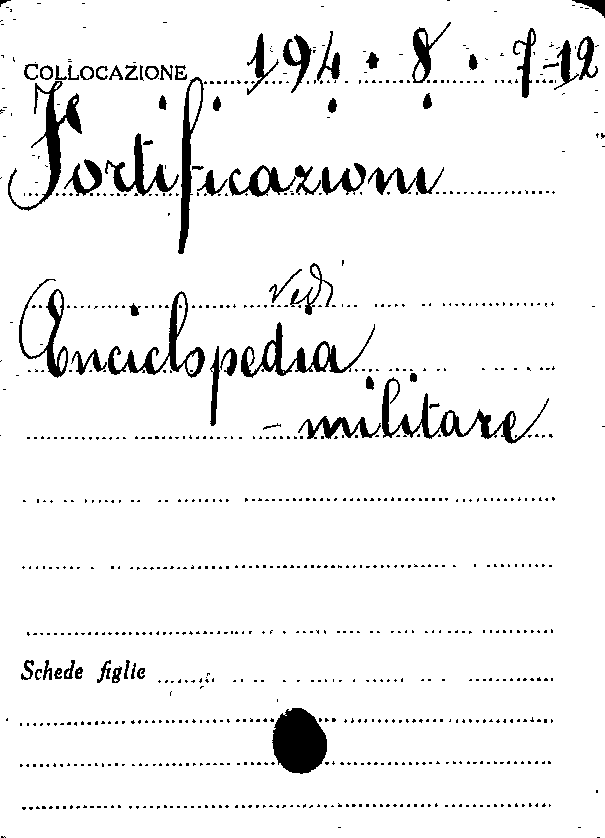 COLLOCAZIONE 194 . 8 . 7-12
Fortificazioni
vedi
Enciclopedia
- militare
Schede figlie